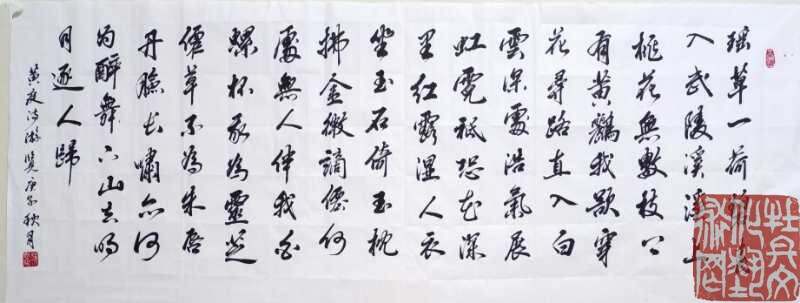 瑶草一荷碧春
入武陵溪溪上
桃花無數枝上
有黄鸝我欲穿
花尋路直入白
雲深處浩氣展
虹霓祗恐花深
里紅露濕人衣
坐玉石倚玉枕
拂金徽謫僊何
處無人伴我白
螺杯我為靈芝
僊草不為朱唇
丹臉长嘯亦何
為醉舞下山去明
月逐人歸
黄庭詩游覽庚子秋月